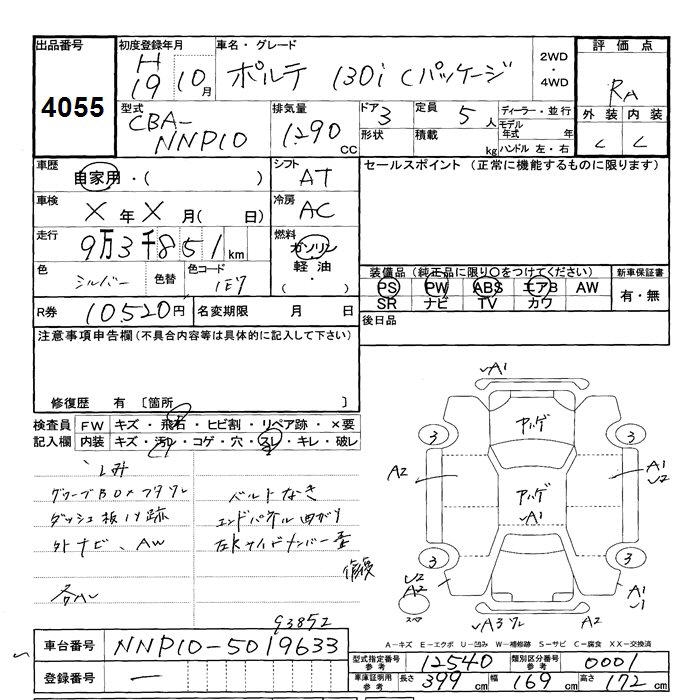 出品番号
4055
初度登録年月
H
19 10月
車名・グレード
ポルテ 130i Cパッケージ
2WD
・
4WD
評価点
RA
外装 内装
C C
型式
CBA-
NNP10
排気量
1290
CC
ドア 3
形状
定員 5人
積載 kg
ディーラー・並行
モデル
年式 年
ハンドル 左・右
車歴
自家用・( )
シフト
AT
セールスポイント (正常に機能するものに限ります)
車検
X年X月( 日)
冷房
AC
走行
9万3千851km
燃料
ガソリン
軽油
( ・ )
色
シルバー
色替
色コード
1E7
装備品 (純正品に限り○をつけてください)
PS PW ABS エアB AW
SR ナビ TV カワ
新車保証書
有・無
R券 10520円
名変期限 月 日
後日品
注意事項申告欄(不具合内容等は具体的に記入して下さい)
修復歴 有 〔箇所 〕
検査員
記入欄
FW キズ・飛石・ヒビ割・リペア跡・×要
内装 キズ・汚れ・コゲ・穴・スレ・キレ・破レ
シミ
グローブBOXフタワレ
ダッシュ板ハリ跡
外ナビ、AW
ベルトなき
エンドパネル曲がり
修復
93852
√A1
3 3
アゲ
A2
アゲ
√A1
A1
√2
3 3
√2
A2
A1
√1
スペア
√A3ワレ A2
A-キズ E-エクボ U-凹み W-補修跡 S-サビ C-腐食 XX-交換済
車台番号 NNP10-5019633
登録番号 —
型式指定番号
参考
12540
類別区分番号
参考
0001
車庫証明用
参考
長さ 399cm 幅 169cm 高さ 172cm